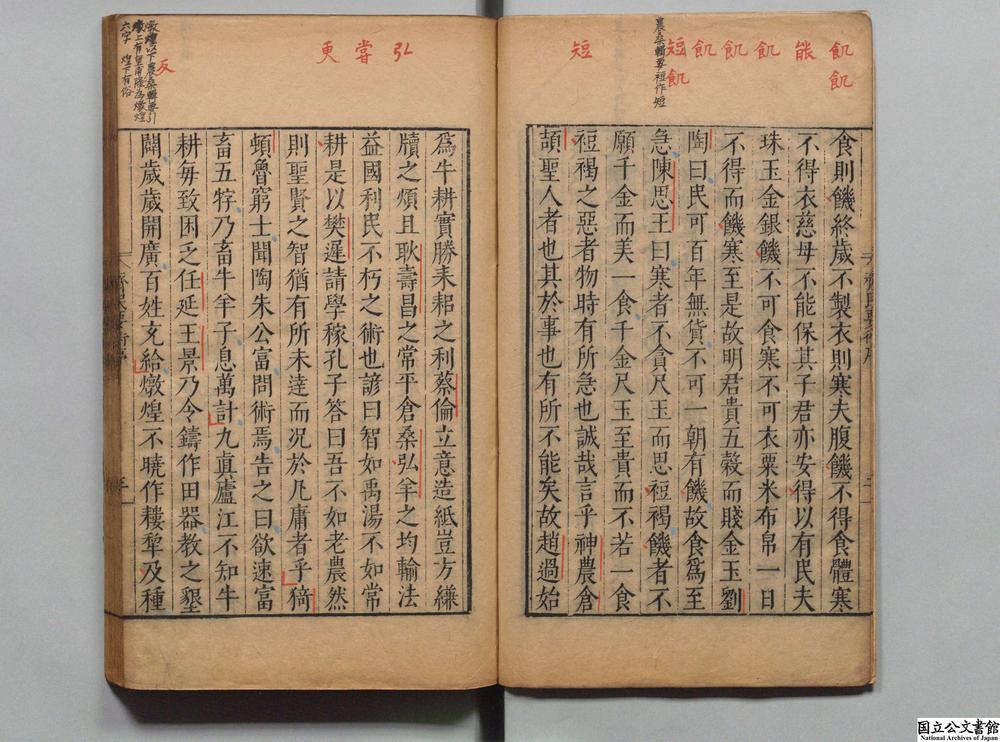 飢
飢
能
飢
飢
飢
短
飢
農桑輯要裋作短
短
食則饑終歲不製衣則寒夫腹饑不得食體寒
不得衣慈母不能保其子君亦安得以有民夫
珠玉金銀饑不可食寒不可衣粟米布帛一日
不得而饑寒至是故明君貴五穀而賤金玉劉
陶曰民可百年無貨不可一朝有饑故食爲至
急陳思王曰寒者不貪尺玉而思裋褐饑者不
願千金而美一食千金尺玉至貴而不若一食
裋褐之惡者物時有所急也誠哉言乎神農倉
頡聖人者也其於事也有所不能矣故趙過始
弘
嘗
更
反
敦煌以下農桑輯要引
燉上有皇甫隆為燉煌
六字 煌下有俗
爲牛耕實勝耒耜之利蔡倫立意造紙豈方縑
牘之煩且耿壽昌之常平倉桑弘羊之均輸法
益國利民不朽之術也諺曰智如禹湯不如常
耕是以樊遲請學稼孔子答曰吾不如老農然
則聖賢之智猶有所未達而況於凡庸者乎猗
頓魯窮士聞陶朱公富問術焉告之曰欲速富
畜五牸乃畜牛羊子息萬計九眞廬江不知牛
耕每致困乏任延王景乃令鑄作田器教之墾
闢歲歲開廣百姓充給燉煌不曉作耬犂及種
国立公文書館
National Archives of Japan